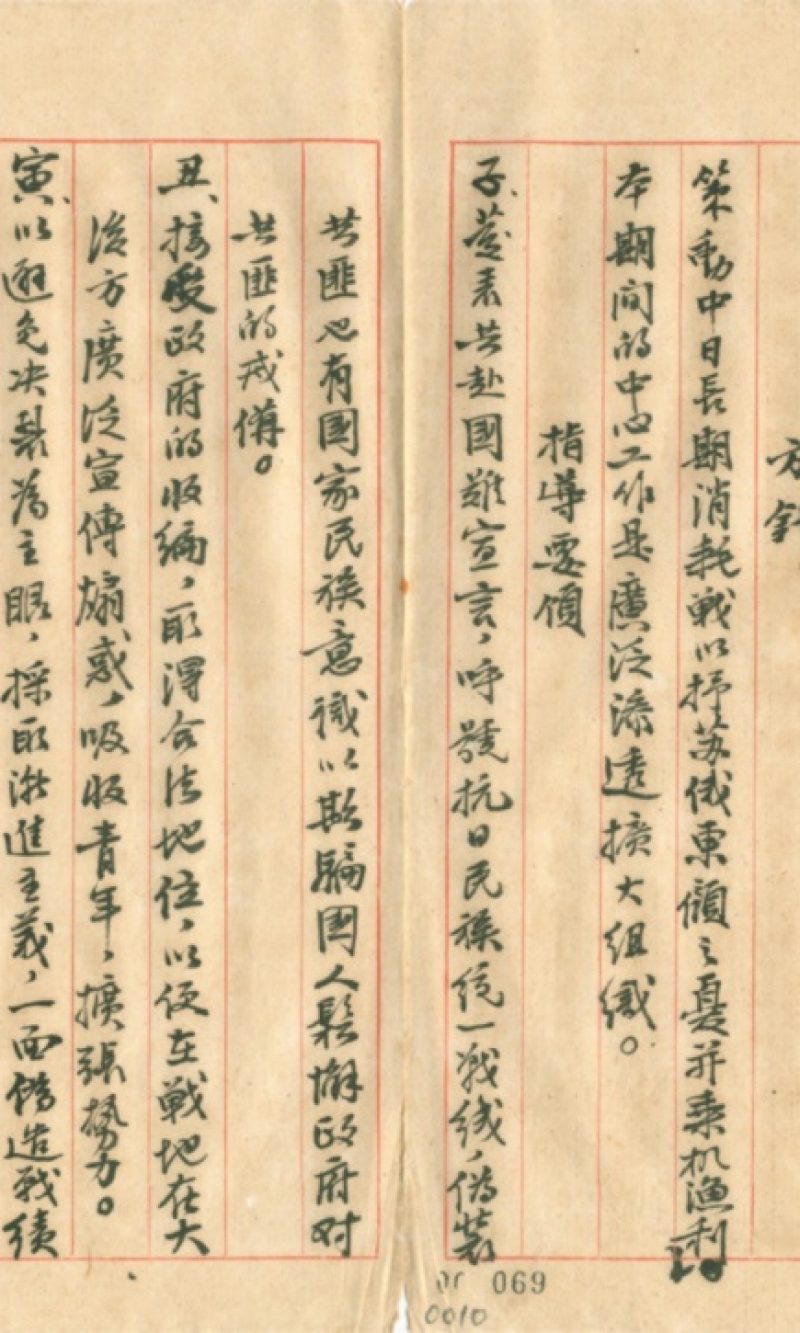 方針
策動中日長期消耗战以抒苏俄東顧之憂并乘机漁利
本期間的中心工作是廣泛滲透擴大组織。
指導要領
子、發表共赴國難宣言，呼號抗日民族統一战线，偽装
共匪也有國家民族意識以欺騙國人鬆懈政府对
共匪的戒備。
丑、接受政府的收編，取得合法地位，以便在戰地在大
後方廣泛宣傳煽惑，吸收青年，擴張勢力。
寅、以避免决裂為主眼，採取漸進主義，一面偽造战績
069
0010